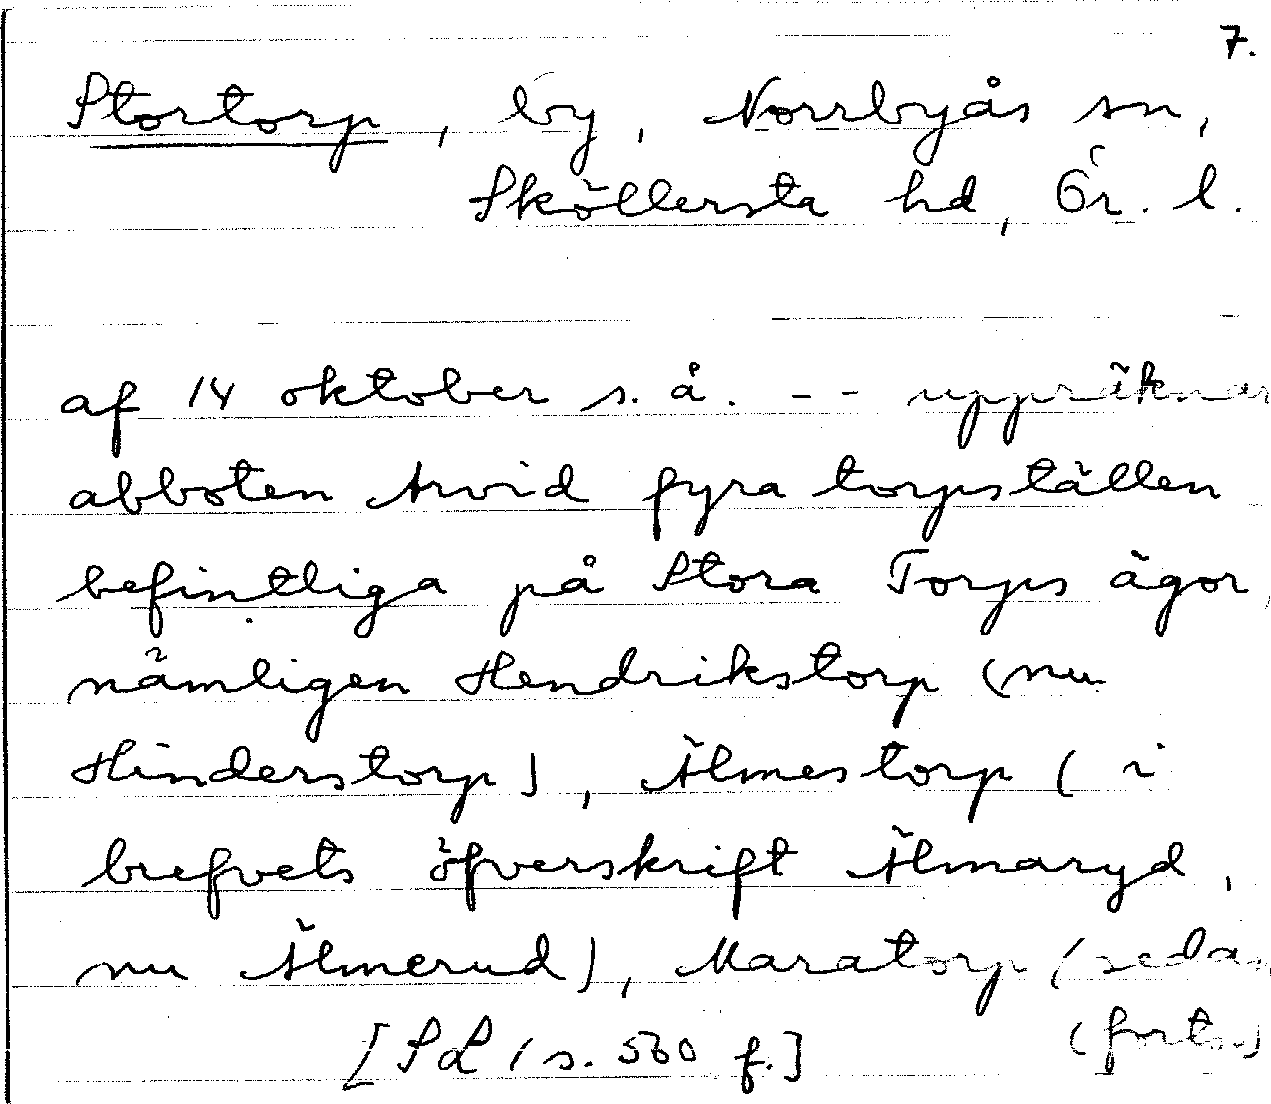 7.
Stortorp, by, Norrbyås sn,
Sköllersta hd, Ör. l.
af 14 oktober s. å. - - uppräknar
abboten Arvid fyra torpställen
befintliga på Stora Torps ägor,
nämligen Hendrikstorp (nu
Hinderstorp), Älmestorp (i
brefvets öfverskrift Älmaryd,
nu Älmerud), Maratorp (sedan
(forts.)
[SL 1 s. 560 f.]